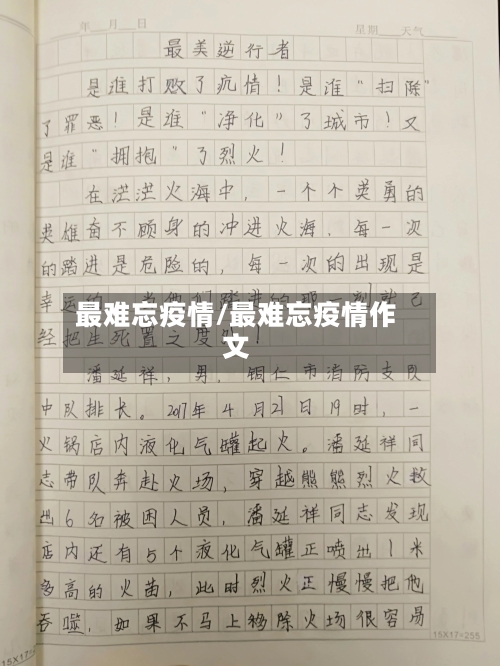 年 月 日 星期 天气
最美逆行者
是谁打败了疫情！是谁“扫除”
了罪恶！是谁“净化”了城市！又
是谁“拥抱”了烈火！
在茫茫火海中，一个个英勇的
英雄奋不顾身的冲进火海．每一次
的踏进是危险的，每一次的出现是
幸运的
就已
最难忘疫情/最难忘疫情作
文
经把生死置之度
潘延祥，男，铜仁市消防支队
中队排长。2017年4月21日19时，一
火锅店内液化气罐起火。潘延祥同
志带队奔赴火场，穿越熊熊烈火救
出6名被困人员，潘延祥同志发现
店内还有5个液化气罐正喷出1米
多高的火苗，此时烈火正慢慢把他
吞噬．如果不马上移除火场很容易
15X17=255
15X17=